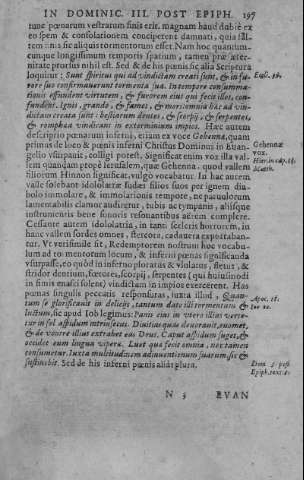 IN DOMINIC. III. POST EPIPH. 197
tunc pœnarum vestrarum finis erit, magnam haud dubiè ex
eo spem & consolationem conciperent damnati, quia saltem
finis sic aliquis tormentorum esset. Nam hoc quantumcunque
longissimum temporis spatium, tamen præ æternitate
prorsus nihil est. Sed & de his pœnis sic alia Scriptura
loquitur: Sunt spiritus qui ad vindictam creati sunt, & in furore
suo confirmauerunt tormenta sua. In tempore consummationis
effundent virtutem, & furorem eius qui fecit illos, confundent.
Ignis, grando, & fames, & mors: omnia hæc ad vindictam
creata sunt: bestiarum dentes, & scorpij, & serpentes,
& romphæa vindicans in exterminium impios. Hæc autem
descriptio pœnarum inferni, etiam ex voce Gehenna, quam
primus de loco & pœnis inferni Christus Dominus in Euangelio
vsurpauit, colligi potest. Significat enim vox illa vallem
quandam propè Ierusalem, quæ Gehenna. quod vallem
filiorum Hinnon significat, vulgò vocabatur. In hac autem
valle solebant idololatræ Iudæi filios suos per ignem diabolo
immolare, & immolationis tempore, ne paruulorum
lamentabilis clamor audiretur, tubis ac tympanis, aliisque
instrumentis bene sonoris resonantibus aërem complere.
Cessante autem idololatria, in tanti sceleris horrorem, in
hanc vallem sordes omnes, stercora, cadauera exportabantur.
Vt verisimile sit, Redemptorem nostrum hoc vocabulum
ad tormentorum locum, & inferni pœnas significanda
vsurpasse, eo quòd in inferno ploratus & vlulatus, fletus, &
stridor dentium, fœtores, scorpij, serpentes (qui huiusmodi
in fimis nasci solent) vindictam in impios exercerent. Has
pœnas singulis peccatis responsuras, iuxta illud, Quantum
se glorificauit in delicijs, tantum date illi tormentum &
luctum, sic apud Iob legimus: Panis eius in vtero illius vertetur
in fel aspidum intrinsecus. Diuitias quas deuorauit, euomet,
& de ventre illius extrahet eas Deus. Caput aspidum suget, &
occidet eum lingua viperæ. Luet quæ fecit omnia, nec tamen
consumetur. Iuxta multitudinem adinuentionum suarum, sic &
sustinebit. Sed de his inferni pœnis aliàs plura.
N 3 EVAN
Eccli. 39.
Gehennæ
vox.
Apoc. 18.
Iob 20.
Dom. 5. post